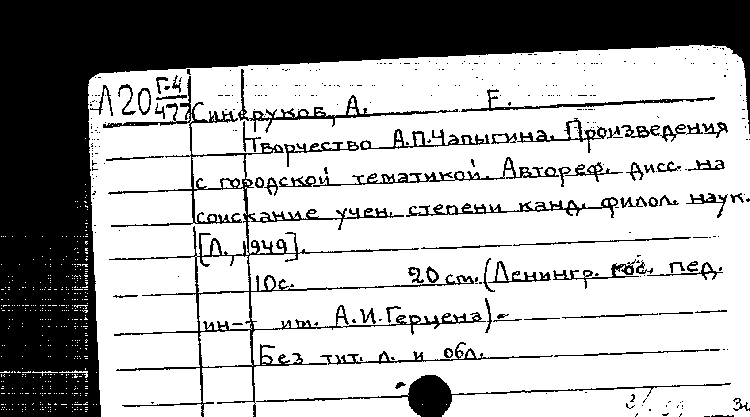 Л20 Г-4/477
Синеруков, А. Е.
Творчество А.П.Чапыгина. Произведения
с городской тематикой. Автореф. дисс. на
соискание учен. степени канд. филол. наук.
[Л., 1949].
10с. 20 cm. (Ленингр. гос. пед.
ин-т им. А.И.Герцена).
Без тит. л. и обл.